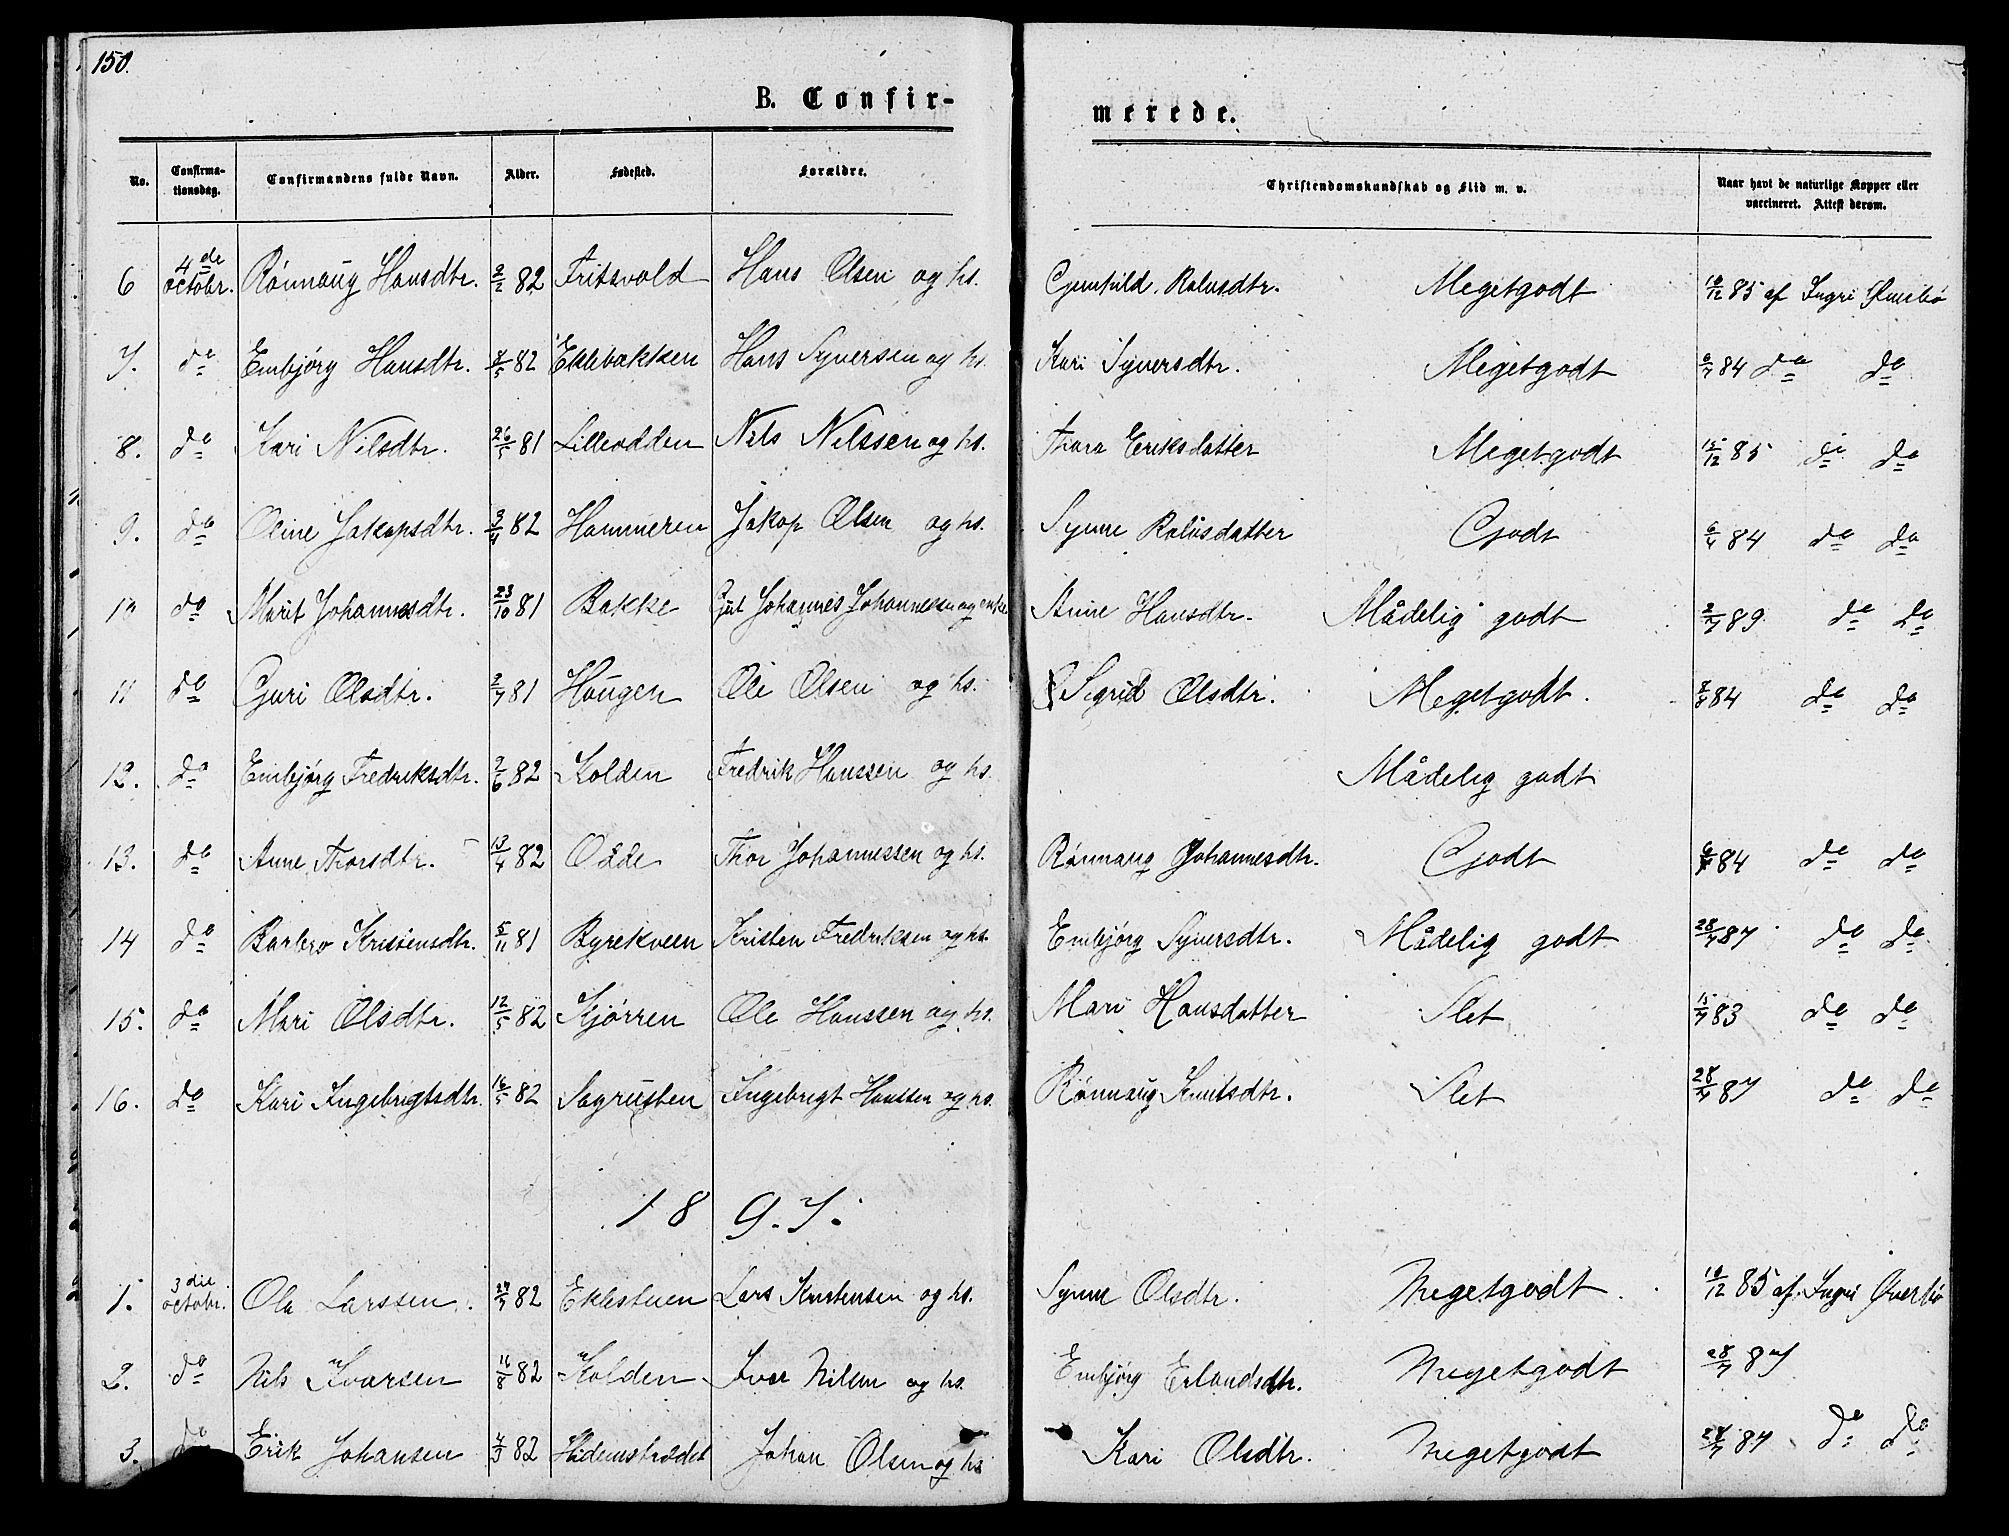 150.
B. Confir-
merede.
No. Confirma-
tionsdag. Confirmandens fulde Navn. Alder. Fødested. Forældre. Christendomskundskab og Flid m. v. Naar havt de naturlige Kopper eller
vaccineret. Attest derom.
6 4de octobr. Rönnaug Hansdtr. 2/2 82 Fritsvold Hans Olsen og hs. Gunhild Rolvsdtr. Megetgodt 10/12 85 af Ingri Øverbö
7. do Embjörg Hansdtr. 82 Eklebakken Hans Syversen og hs. Kari Syversdtr. Megetgodt 6/7 84 do do
8. do Kari Nilsdtr. 26/5 81 Lilleodden Nils Nilssen og hs. Thora Eriksdatter Megetgodt 15/12 85 do do
9. do Oline Jakopsdtr. 3/4 82 Hammeren Jakop Olsen og hs. Synne Rolvsdatter Godt 84 do do
10 do Marit Johannesdtr. 23/10 81 Bakke Gut Johannes Johannessen og enke Anne Hansdtr. Mådelig godt 2/7 89. do do
11 do Guri Olsdtr. 2/7 81 Haugen Ole Olsen og hs. Sigrid Olsdtr. Megetgodt. 84 do do
12. do Embjörg Fredriksdtr. 2/6 82 Kolden Fredrik Hanssen og hs. Mådelig godt
13. do Anne Thorsdtr. 13/4 82 Odde Thor Johannessen og hs. Rönnaug Johannesdtr. Godt 84 do do
14 do Barbro Kristensdtr. 5/11 81 Byrekveen Kristen Fredriksen og hs. Embjörg Syversdtr. Mådelig godt 28/7 87 do do
15. do Mari Olsdtr. 12/5 82 Kjörren Ole Hanssen og hs. Mari Hansdatter Slet 15/7 83 do do
16. do Kari Ingebrigtsdtr. 16/5 82 Sagrusten Ingebrigt Hanssen og hs. Rönnaug Knutsdtr. Slet 28/7 87 do do
1897.
1. 3die octobr. Ole Larssen. 82 Eklestuen Lars Kristensen og hs. Synne Olsdtr. Megetgodt. 10/12 85 af Ingri Øverbö
2. do Nils Ivarsen 16/8 82 Kolden Iver Nilsen og hs. Embjörg Erlandsdtr. Megetgodt 28/7 87
3. do Erik Johansen 4/3 82 Hidemstrædet Johan Olsen og hs Kari Olsdtr. Megetgodt 28/7 87 do do